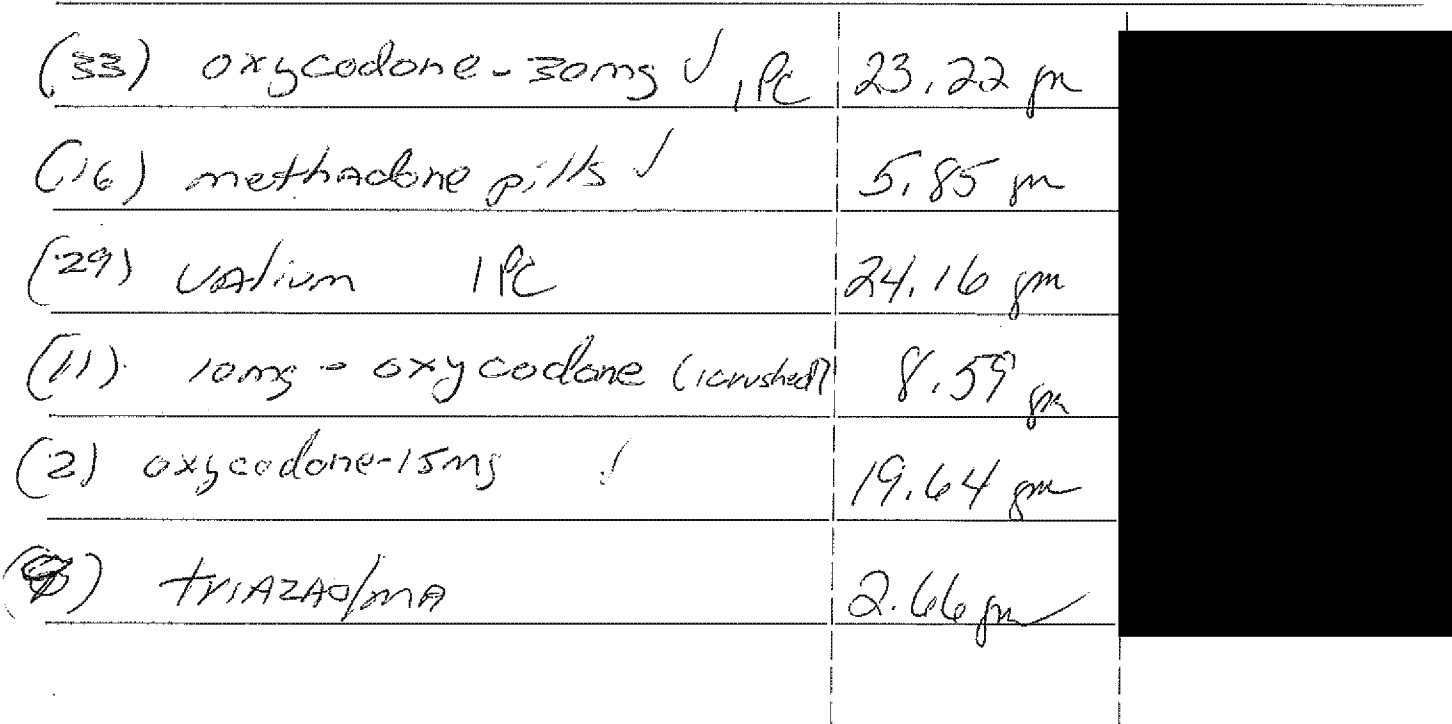 (33) oxycodone-30mg ✓, PC 23.22 gm
(16) methadone pills ✓ 5.85 gm
(29) valium 1 PC 24.16 gm
(11) 10mg - oxycodone (1 crushed) 8.59 gm
(2) oxycodone-15mg ✓ 19.64 gm
triazaolma 2.66 gm